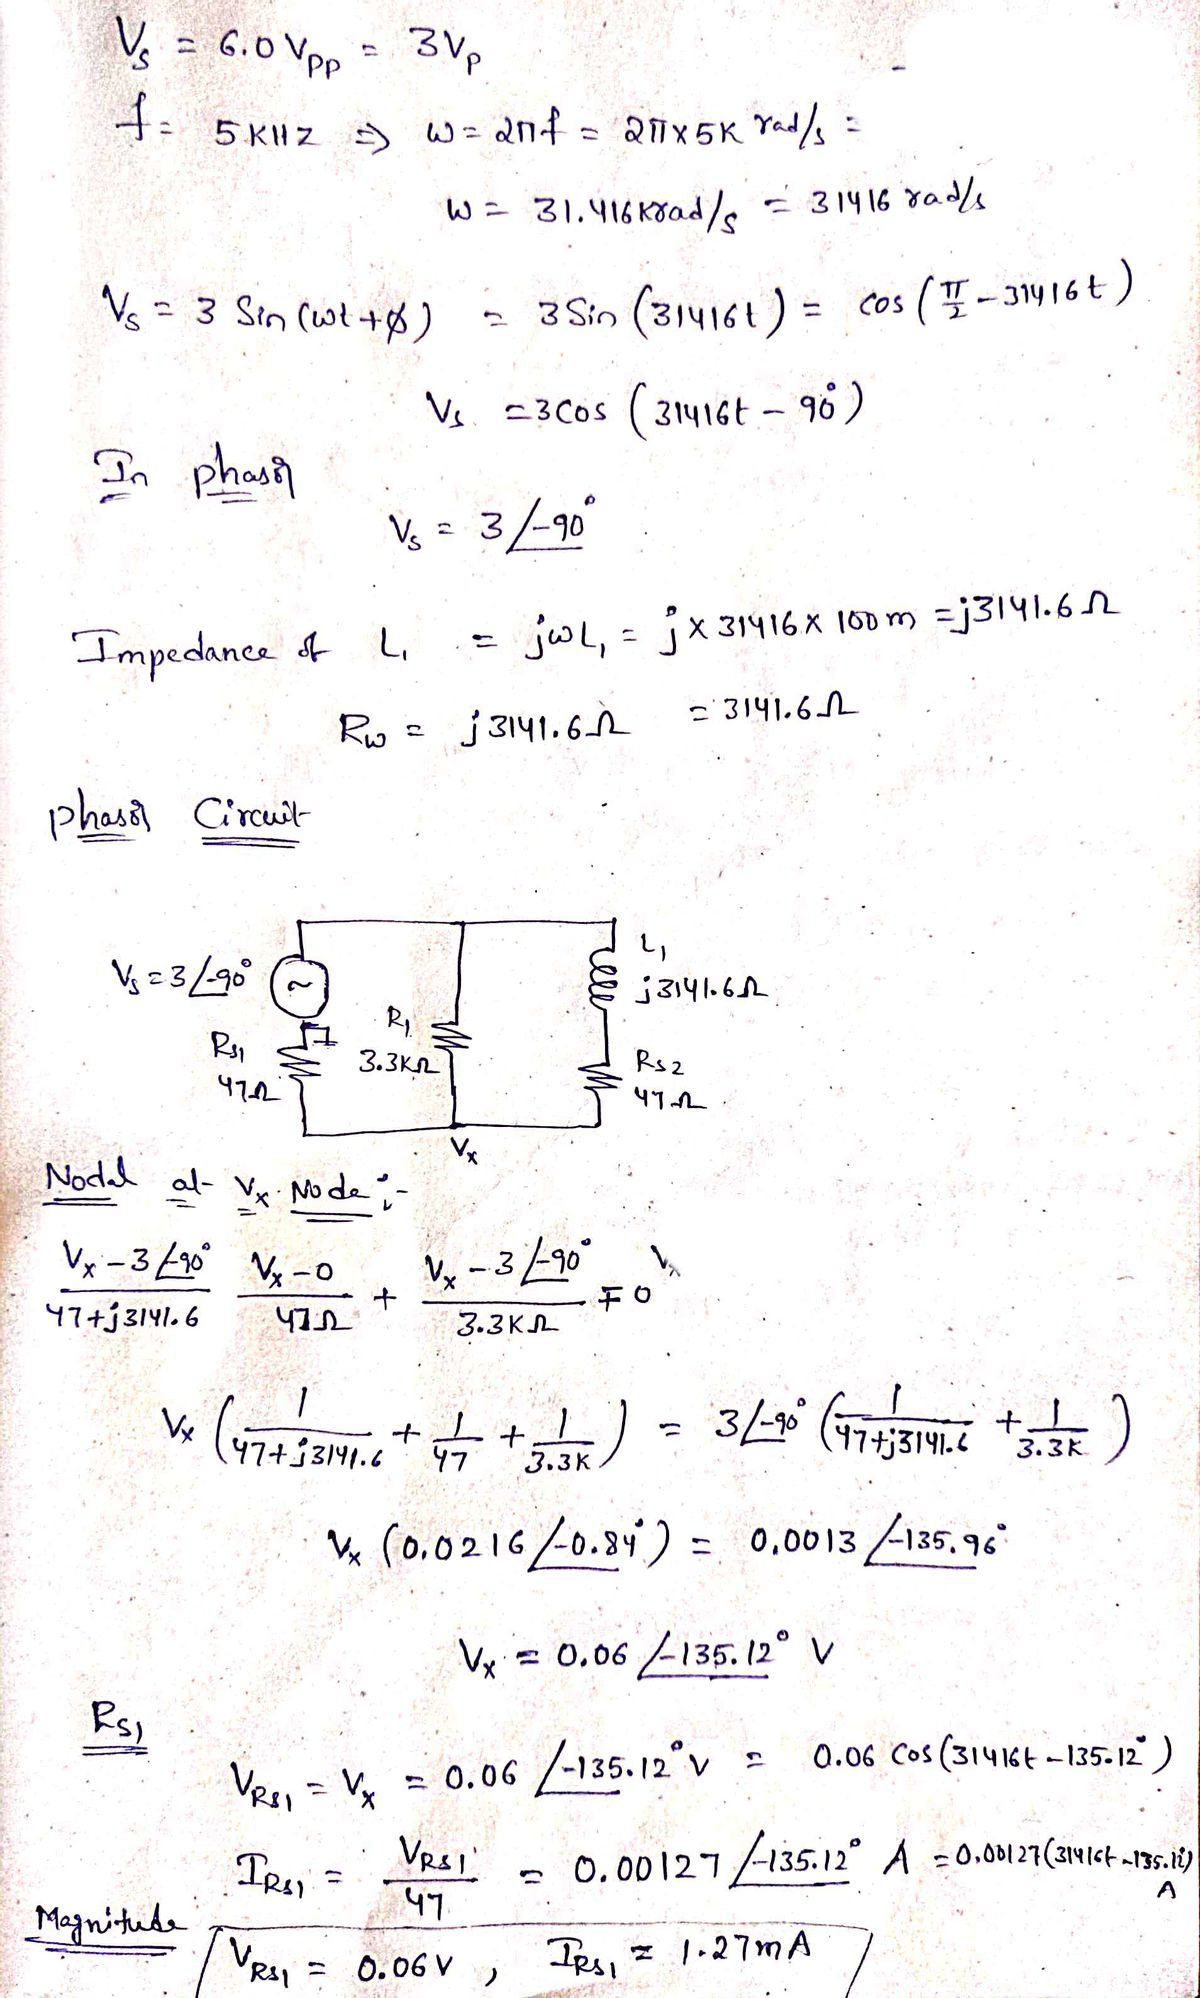 Vs = 6.0 Vpp = 3Vp
f = 5 KHZ ⇒ ω = 2πf = 2π×5K rad/s =
ω = 31.416 Krad/s = 31416 rad/s
Vs = 3 Sin (ωt + φ) = 3 Sin (31416t) = cos (π/2 - 31416t)
Vs = 3 cos (31416t - 90°)
In phasor
Vs = 3 ∠-90°
Impedance of L1 = jωL1 = j × 31416 × 100m = j3141.6Ω
Rω = j3141.6Ω = 3141.6Ω
phasor Circuit
Vs = 3∠-90° ~ L1 j3141.6Ω
RS1 47Ω R1 3.3KΩ RS2 47Ω
Vx
Nodal at Vx Node :-
(Vx - 3∠-90°)/(47+j3141.6) (Vx - 0)/(47Ω) + (Vx - 3∠-90°)/(3.3KΩ) = 0
Vx (1/(47+j3141.6) + 1/47 + 1/3.3K) = 3∠-90° (1/(47+j3141.6) + 1/3.3K)
Vx (0.0216 ∠-0.84°) = 0.0013 ∠-135.96°
Vx = 0.06 ∠-135.12° V
RS1
VRS1 = Vx = 0.06 ∠-135.12° V = 0.06 cos(31416t - 135.12°)
IRS1 = VRS1/47 = 0.00127 ∠-135.12° A = 0.00127(31416t - 135.12) A
Magnitude
VRS1 = 0.06 V , IRS1 = 1.27mA